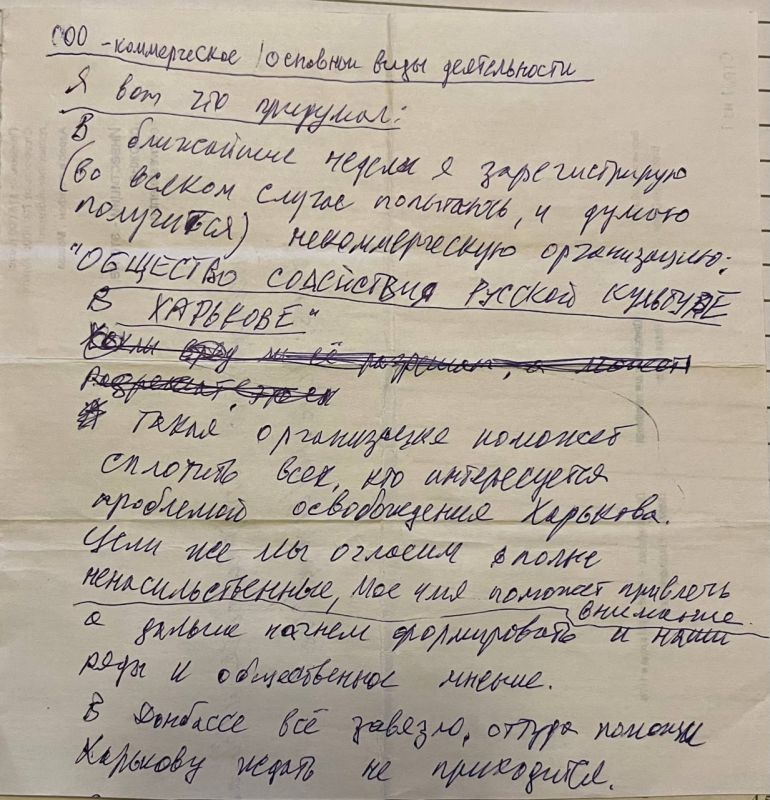 ООО - коммерческое / основной виды деятельности
Я вот что придумал:
В ближайшие недели я зарегистрирую
(во всяком случае попытаюсь, и думаю
получится) некоммерческую организацию:
"ОБЩЕСТВО СОДЕЙСТВИЯ РУССКОЙ КУЛЬТУРЕ
В ХАРЬКОВЕ"
разрешат, а может
Такая организация поможет
сплотить всех, кто интересуется
проблемой освобождения Харькова.
Цели же мы огласим вполне
ненасильственные, Мое имя поможет привлечь
внимание.
а дальше начнем формировать и наши
ряды и общественное мнение.
В Донбассе всё завязло, оттуда помощи
Харькову ждать не приходится.